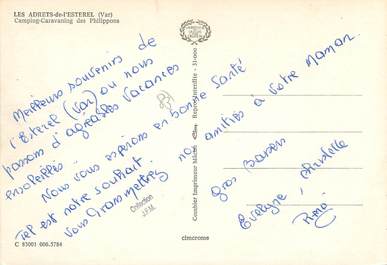 LES ADRETS-de-l'ESTEREL (Var)
Camping-Caravaning des Philippons
Meilleurs souvenirs de
l'Esterel (Var) ou nous
passons d'agréables vacances
ensoleillés.
Nous vous espérons en bonne santé
Tel est notre souhait.
Vous transmettrez nos amitiés à votre Maman.
Gros Baisers
Evelyne, Christelle
René
83
Collection
J.F.M.
Combier Imprimeur Mâcon
Repr. Interdite - 31-000
C 83001 006.5784
cimcrome